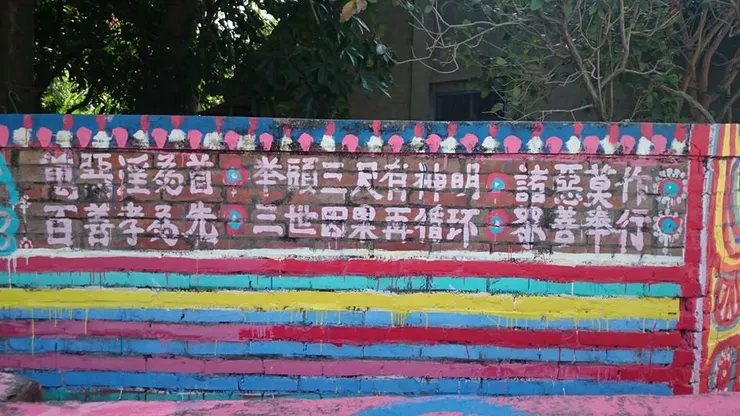 萬惡淫為首 举頭三尺有神明 諸惡莫作
百善孝為先 三世因果再循环 眾善奉行